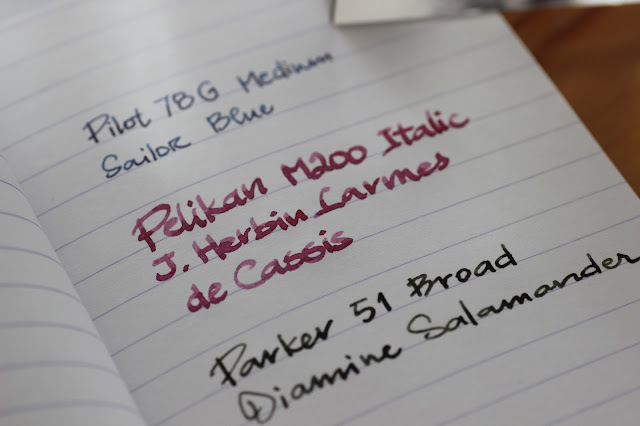 Pilot 78G Medium
Sailor Blue
Pelikan M200 Italic
J. Herbin Larmes
de Cassis
Parker 51 Broad
Diamine Salamander